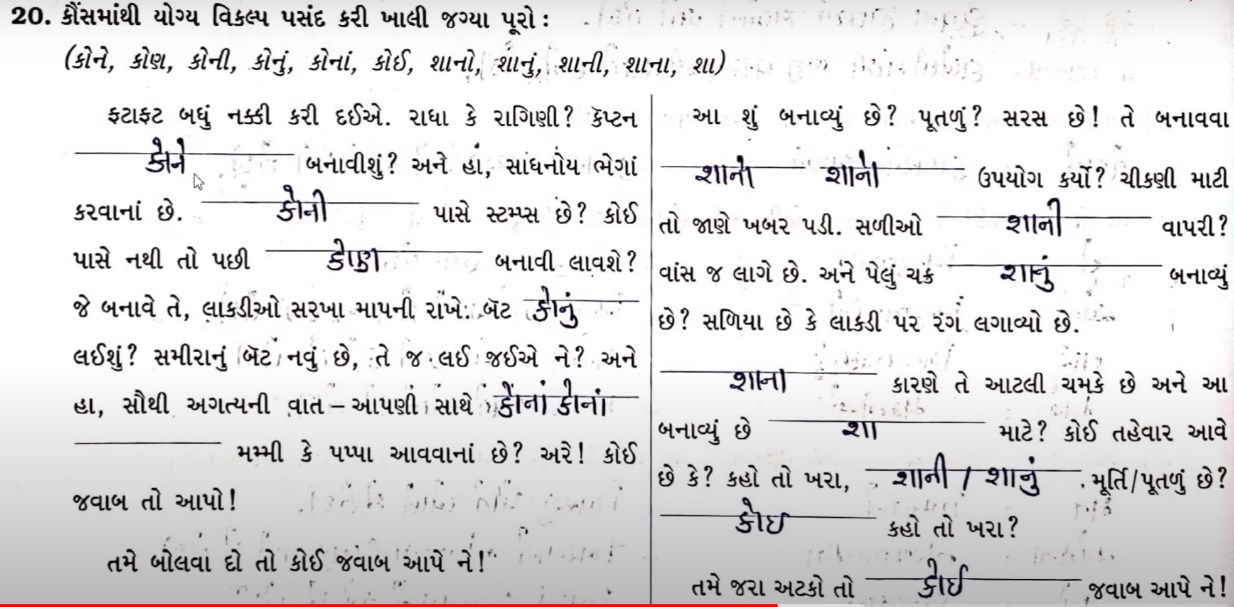 20. કૌંસમાંથી યોગ્ય વિકલ્પ પસંદ કરી ખાલી જગ્યા પૂરો :
(કોને, કોણ, કોની, કોનું, કોનાં, કોઈ, શાનો, શાનું, શાની, શાના, શા)
ફટાફટ બધું નક્કી કરી દઈએ. રાધા કે રાગિણી? કૅપ્ટન
કોને બનાવીશું? અને હાં, સાધનોય ભેગાં
કરવાનાં છે. કોની પાસે સ્ટમ્પ્સ છે? કોઈ
પાસે નથી તો પછી કોણ બનાવી લાવશે?
જે બનાવે તે, લાકડીઓ સરખા માપની રાખે. બૅટ કોનું
લઈશું? સમીરાનું બૅટ નવું છે, તે જ લઈ જઈએ ને? અને
હા, સૌથી અગત્યની વાત – આપણી સાથે કોનાં કોનાં
મમ્મી કે પપ્પા આવવાનાં છે? અરે! કોઈ
જવાબ તો આપો!
તમે બોલવા દો તો કોઈ જવાબ આપે ને!
આ શું બનાવ્યું છે? પૂતળું? સરસ છે! તે બનાવવા
શાનો શાનો ઉપયોગ કર્યો? ચીકણી માટી
તો જાણે ખબર પડી. સળીઓ શાની વાપરી?
વાંસ જ લાગે છે. અને પેલું ચક્ર શાનું બનાવ્યું
છે? સળિયા છે કે લાકડી પર રંગ લગાવ્યો છે.
શાના કારણે તે આટલી ચમકે છે અને આ
બનાવ્યું છે શા માટે? કોઈ તહેવાર આવે
છે કે? કહો તો ખરા, શાની / શાનું મૂર્તિ/પૂતળું છે?
કોઇ કહો તો ખરા?
તમે જરા અટકો તો કોઈ જવાબ આપે ને!